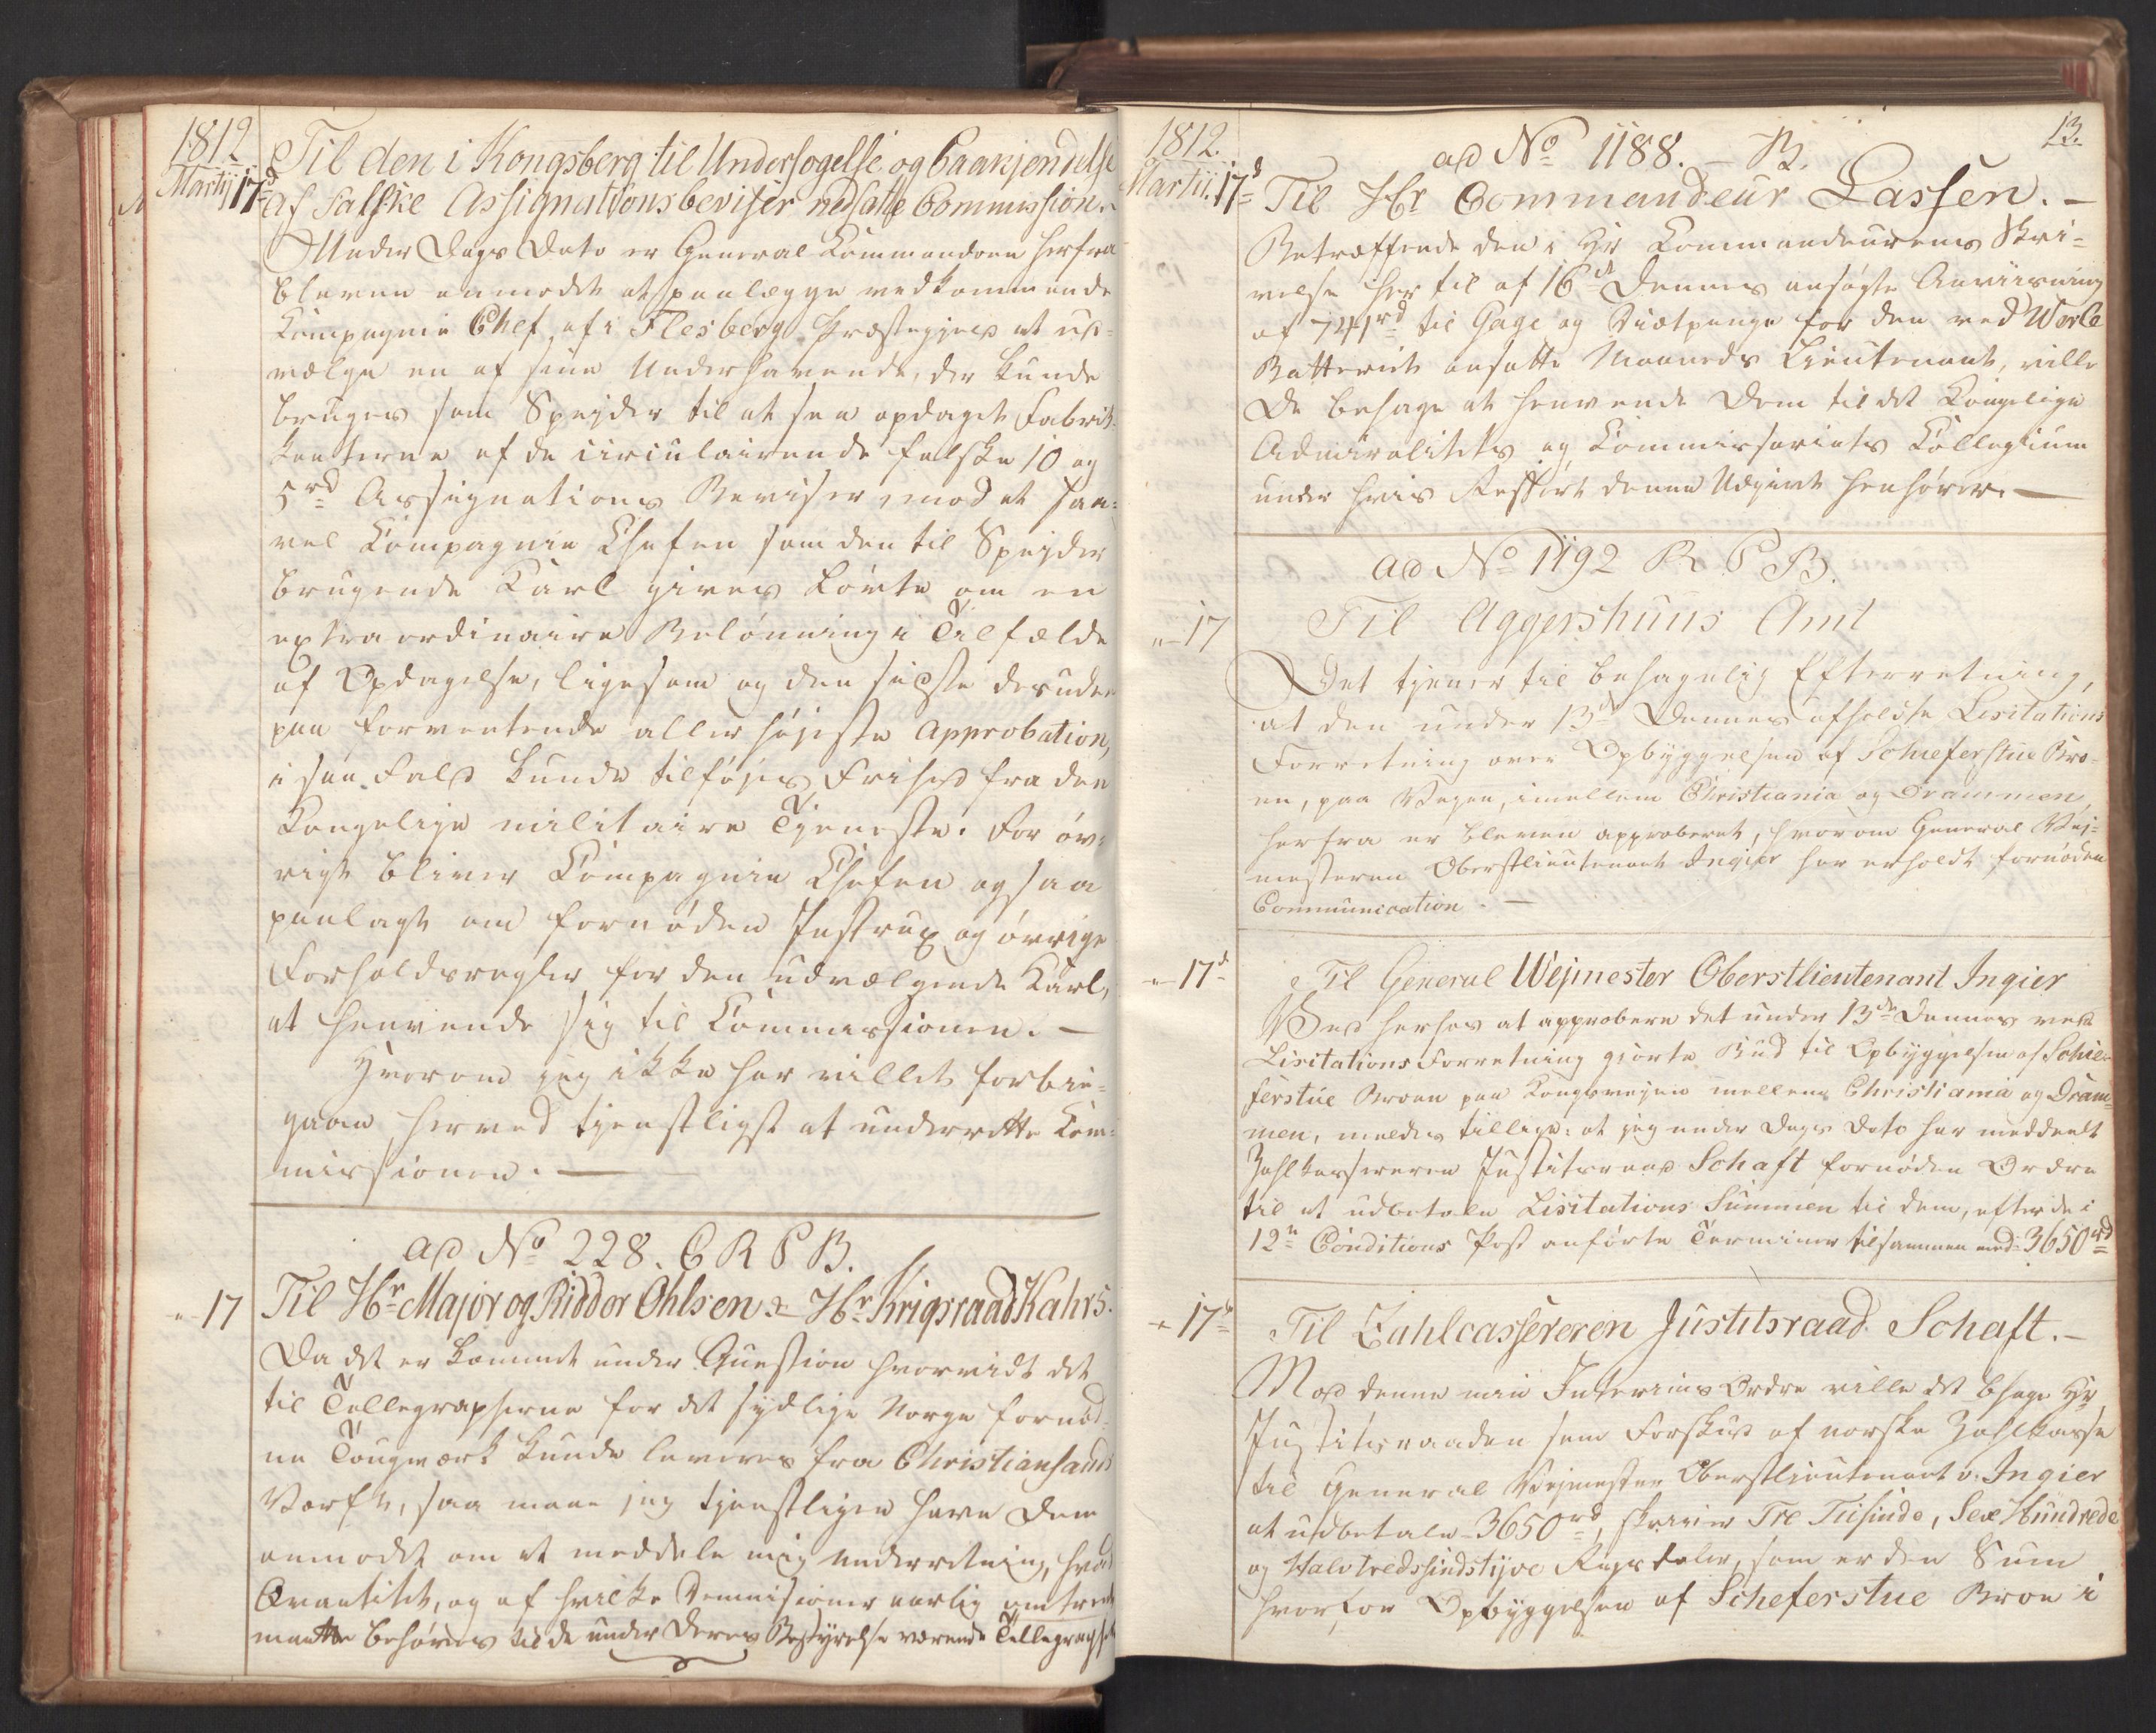 1812
Martij 17d
Til den i Kongsberg til Undersøgelse og Paakjendelse
af falske Assignationsbeviser nedsatte Commission.
Under Dags Dato er General Kommandoen herfra
bleven anmodet at paalægge vedkommende
Kompagnie Chef af i Flesberg Præstegjeld at ud=
vælge en af sine Underhavende, der kunde
bruges som Spejder til at faa opdaget Fabrik=
kanterne af de circulairende falske 10 og
5rd Assignations Beviser, mod at saa=
vel Kompagnie Chefen som den til Spejder
brugende Karl gives Løvte om en
extraordinaire Belønning i Tilfælde
af Opdagelse, ligesom og den sidste desuden
paa forventende allerhøjeste Approbation,
i saa Fald kunde tilføjes Frihed fra den
Kongelige militaire Tjeneste. For øv=
rigt bliver Kompagnie Chefen ogsaa
paalagt om fornøden Instrux og øvrige
Forholdsregler for den udvælgende Karl,
at henvende sig til Kommissionen. —
Hvorom jeg ikke har villet forbie=
gaae herved tjenstligst at underrette Kom=
missionen. —
ad No 228. C R P B.
"-17
Til Hr Major og Ridder Ohlsen & Hr Krigsraad Kahrs.
Da det er kommet under Question hvorvidt det
til Tellegrapherne for det sydlige Norge fornød=
ne Tougværk kunde leveres fra Christiansands
Værft, saa maae jeg tjenstligen have Dem
anmodet om at meddele mig Underretning, hvad
Qvantitet, og af hvilke Demensioner aarlig omtrent
maatte behøves til de under Deres Bestyrelse værende Tellegrapher
13.
1812.
Martii. 17d
ad No 1188. - B.
Til Hr Commandeur Lassen. —
Betræffende den i Hr Commandeurens Skri=
velse hertil af 16de Dennes ansøgte Anviisning
af 741rd til Gage og Diætpenge for den ved Werle
Batteriet ansatte Maaneds Lieutenant, ville
De behage at henvende Dem til det Kongelige
Admiralitets og Kommissariats Kollegium
under hvis Ressort denne Udgivt henhører. —
ad No 1192 R P B.
"-17
Til Aggershuus Amt
Det tjener til behagelig Efterretning,
at den under 13de Dennes afholdte Lisitations
Forretning over Opbyggelsen af Schieferstue Bro=
en, paa Vejen, imellem Christiania og Drammen,
herfra er bleven approberet, hvorom General Vej=
mesteren Oberstlieutenant Ingier har erholdt fornøden
Communication. —
"-17d
Til General Wejmester Oberstlieutenant Ingier
Ved herhos at approbere det under 13de Dennes ved
Lisitations Forretning gjorte Bud til Opbyggelsen af Schie=
ferstue Broen paa Kongevejen mellem Christiania og Dram=
men, meldes tillige: at jeg under Dags Dato har meddeelt
Zahlkassereren Justitsraad Schaft fornøden Ordre
til at udbetale Lisitations Summen til dem, efter de i
12te Conditions Post anførte Terminer tilsammen med 3650rd
"-17de
Til Zahlcassereren Justitsraad Schaft. —
Mod denne min Interims Ordre ville det behage Hr
Justitsraaden som Forskud af norske Zahlkasse
til General Vejmester Oberstlieutenant v. Ingier
at udbetale 3650rd, skriver Tre Tusinde, Sex Hundrede
og Halvtredssindstyve Rigsdaler, som er den Sum
hvorfor Opbyggelsen af Scheferstue Broe i